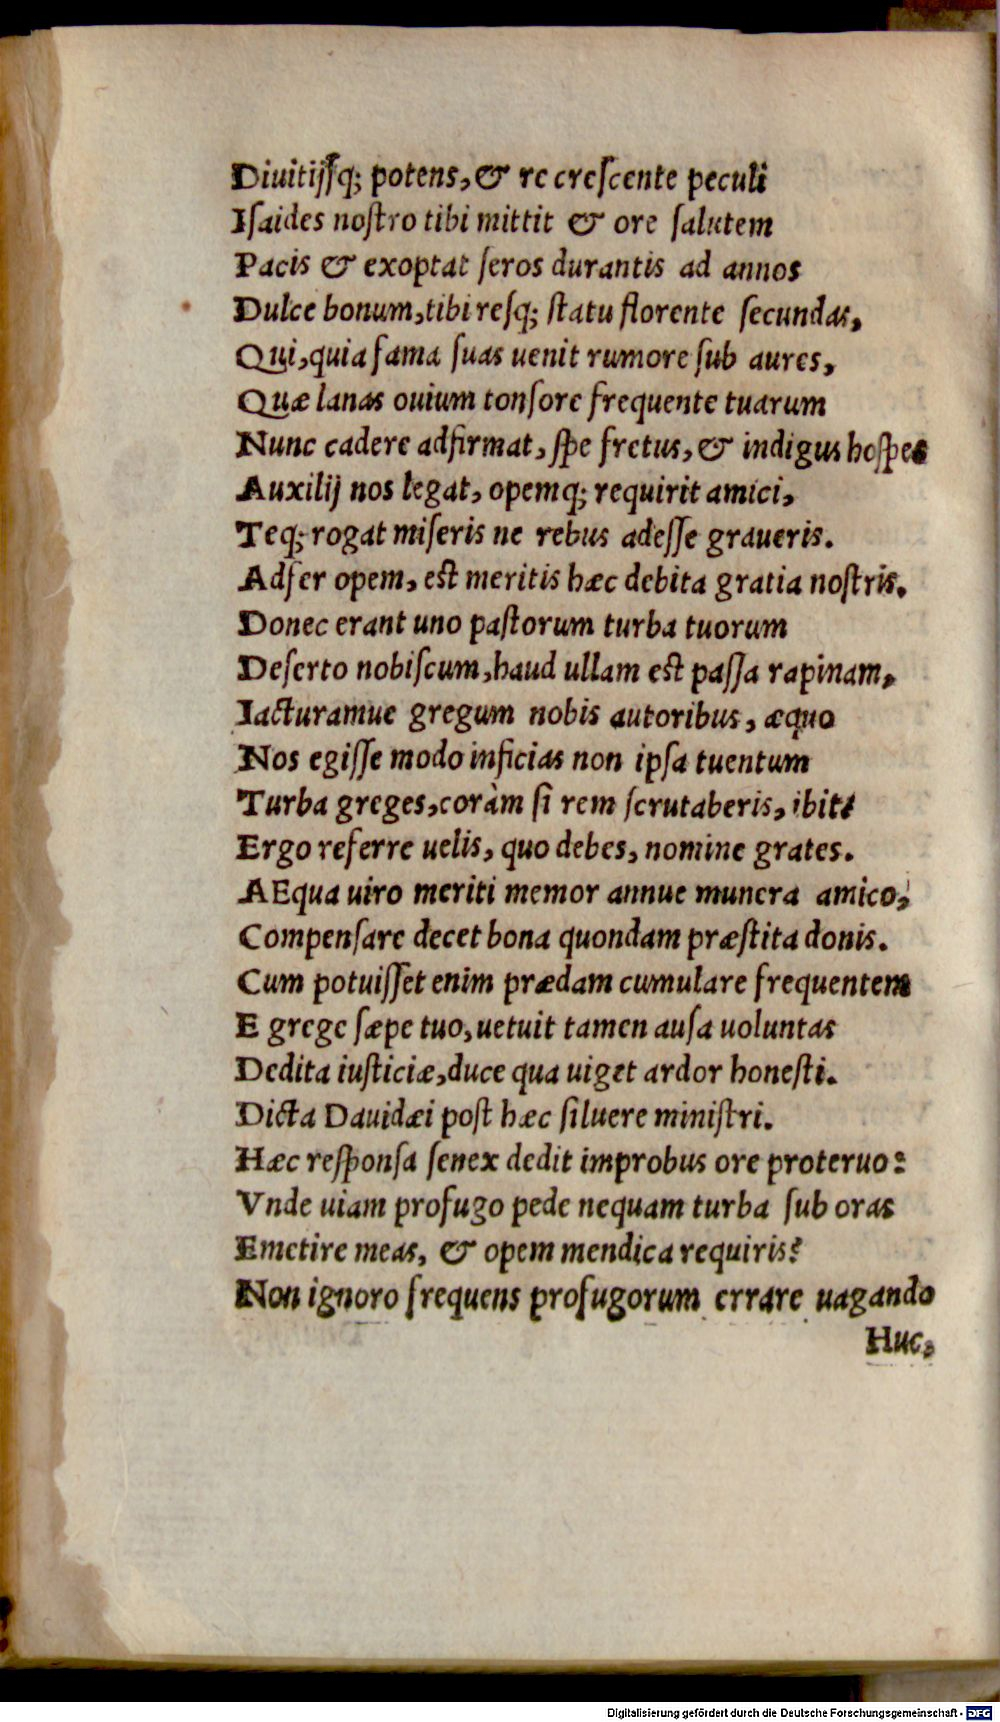 Diuitijſq; potens, & re creſcente peculi
Iſaides noſtro tibi mittit & ore ſalutem
Pacis & exoptat ſeros durantis ad annos
Dulce bonum, tibi reſq; ſtatu florente ſecundas,
Qui, quia fama ſuas uenit rumore ſub aures,
Quæ lanas ouium tonſore frequente tuarum
Nunc cadere adfirmat, ſpe fretus, & indigus hoſpes
Auxilij nos legat, opemq; requirit amici,
Teq; rogat miſeris ne rebus adeſſe graueris.
Adfer opem, eſt meritis hæc debita gratia noſtris.
Donec erant uno paſtorum turba tuorum
Deſerto nobiſcum, haud ullam eſt paſſa rapinam,
Iacturamue gregum nobis autoribus, æquo
Nos egiſſe modo inficias non ipſa tuentum
Turba greges, coràm ſi rem ſcrutaberis, ibit:
Ergo referre uelis, quo debes, nomine grates.
AEqua uiro meriti memor annue munera amico,
Compenſare decet bona quondam præſtita donis.
Cum potuiſſet enim prædam cumulare frequentem
E grege ſæpe tuo, uetuit tamen auſa uoluntas
Dedita iuſticiæ, duce qua uiget ardor honeſti.
Dicta Dauidæi poſt hæc ſiluere miniſtri.
Hæc reſponſa ſenex dedit improbus ore proteruo:
Vnde uiam profugo pede nequam turba ſub oras
Emetire meas, & opem mendica requiris?
Non ignoro frequens profugorum errare uagando
Huc,
Digitalisierung gefördert durch die Deutsche Forschungsgemeinschaft - DFG